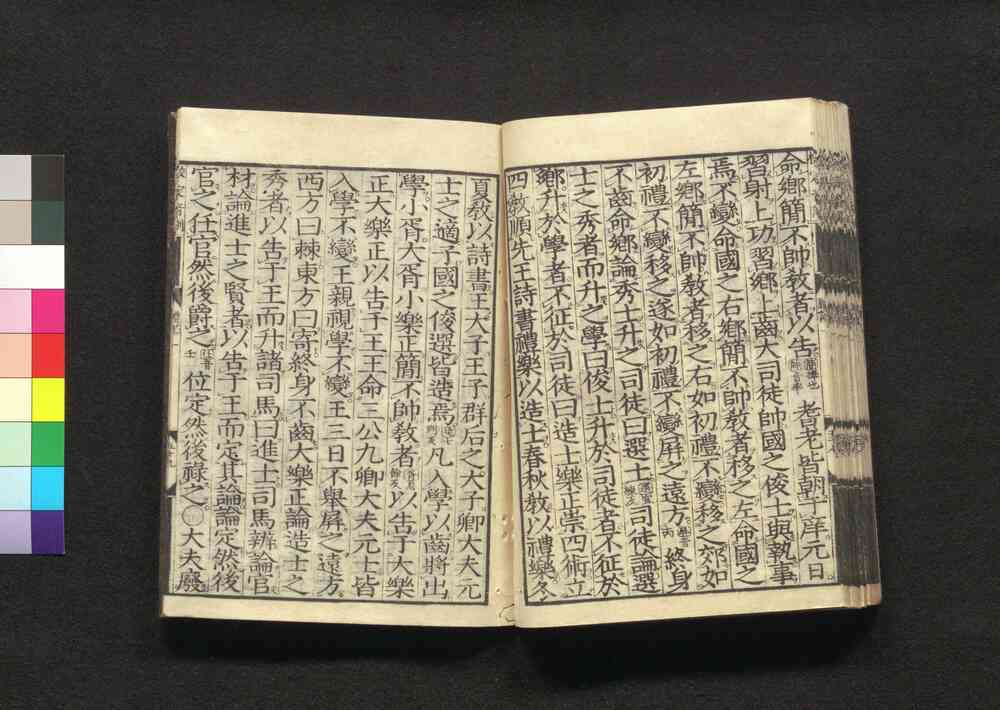 命鄉簡不帥教者以告耆老皆朝于庠元日
習射上功習鄉上齒大司徒帥國之俊士與執事
焉不變命國之右鄉簡不帥教者移之左命國之
左鄉簡不帥教者移之右如初禮不變移之郊如
初禮不變移之遂如初禮不變屏之遠方終身
不齒命鄉論秀士升之司徒曰選士司徒論選
士之秀者而升之學曰俊士升於司徒者不征於
鄉升於學者不征於司徒曰造士樂正崇四術立
四教順先王詩書禮樂以造士春秋教以禮樂冬
夏教以詩書王大子王子群后之大子卿大夫元
士之適子國之俊選皆造焉凡入學以齒將出
學小胥大胥小樂正簡不帥教者以告于大樂
正大樂正以告于王王命三公九卿大夫元士皆
入學不變王親視學不變王三日不舉屏之遠方
西方曰棘東方曰寄終身不齒大樂正論造士之
秀者以告于王而升諸司馬曰進士司馬辨論官
材論進士之賢者以告于王而定其論論定然後
官之任官然後爵之位定然後祿之大夫廢